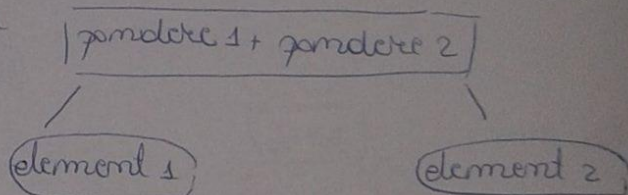 pondere 1 + pondere 2
element 1
element 2